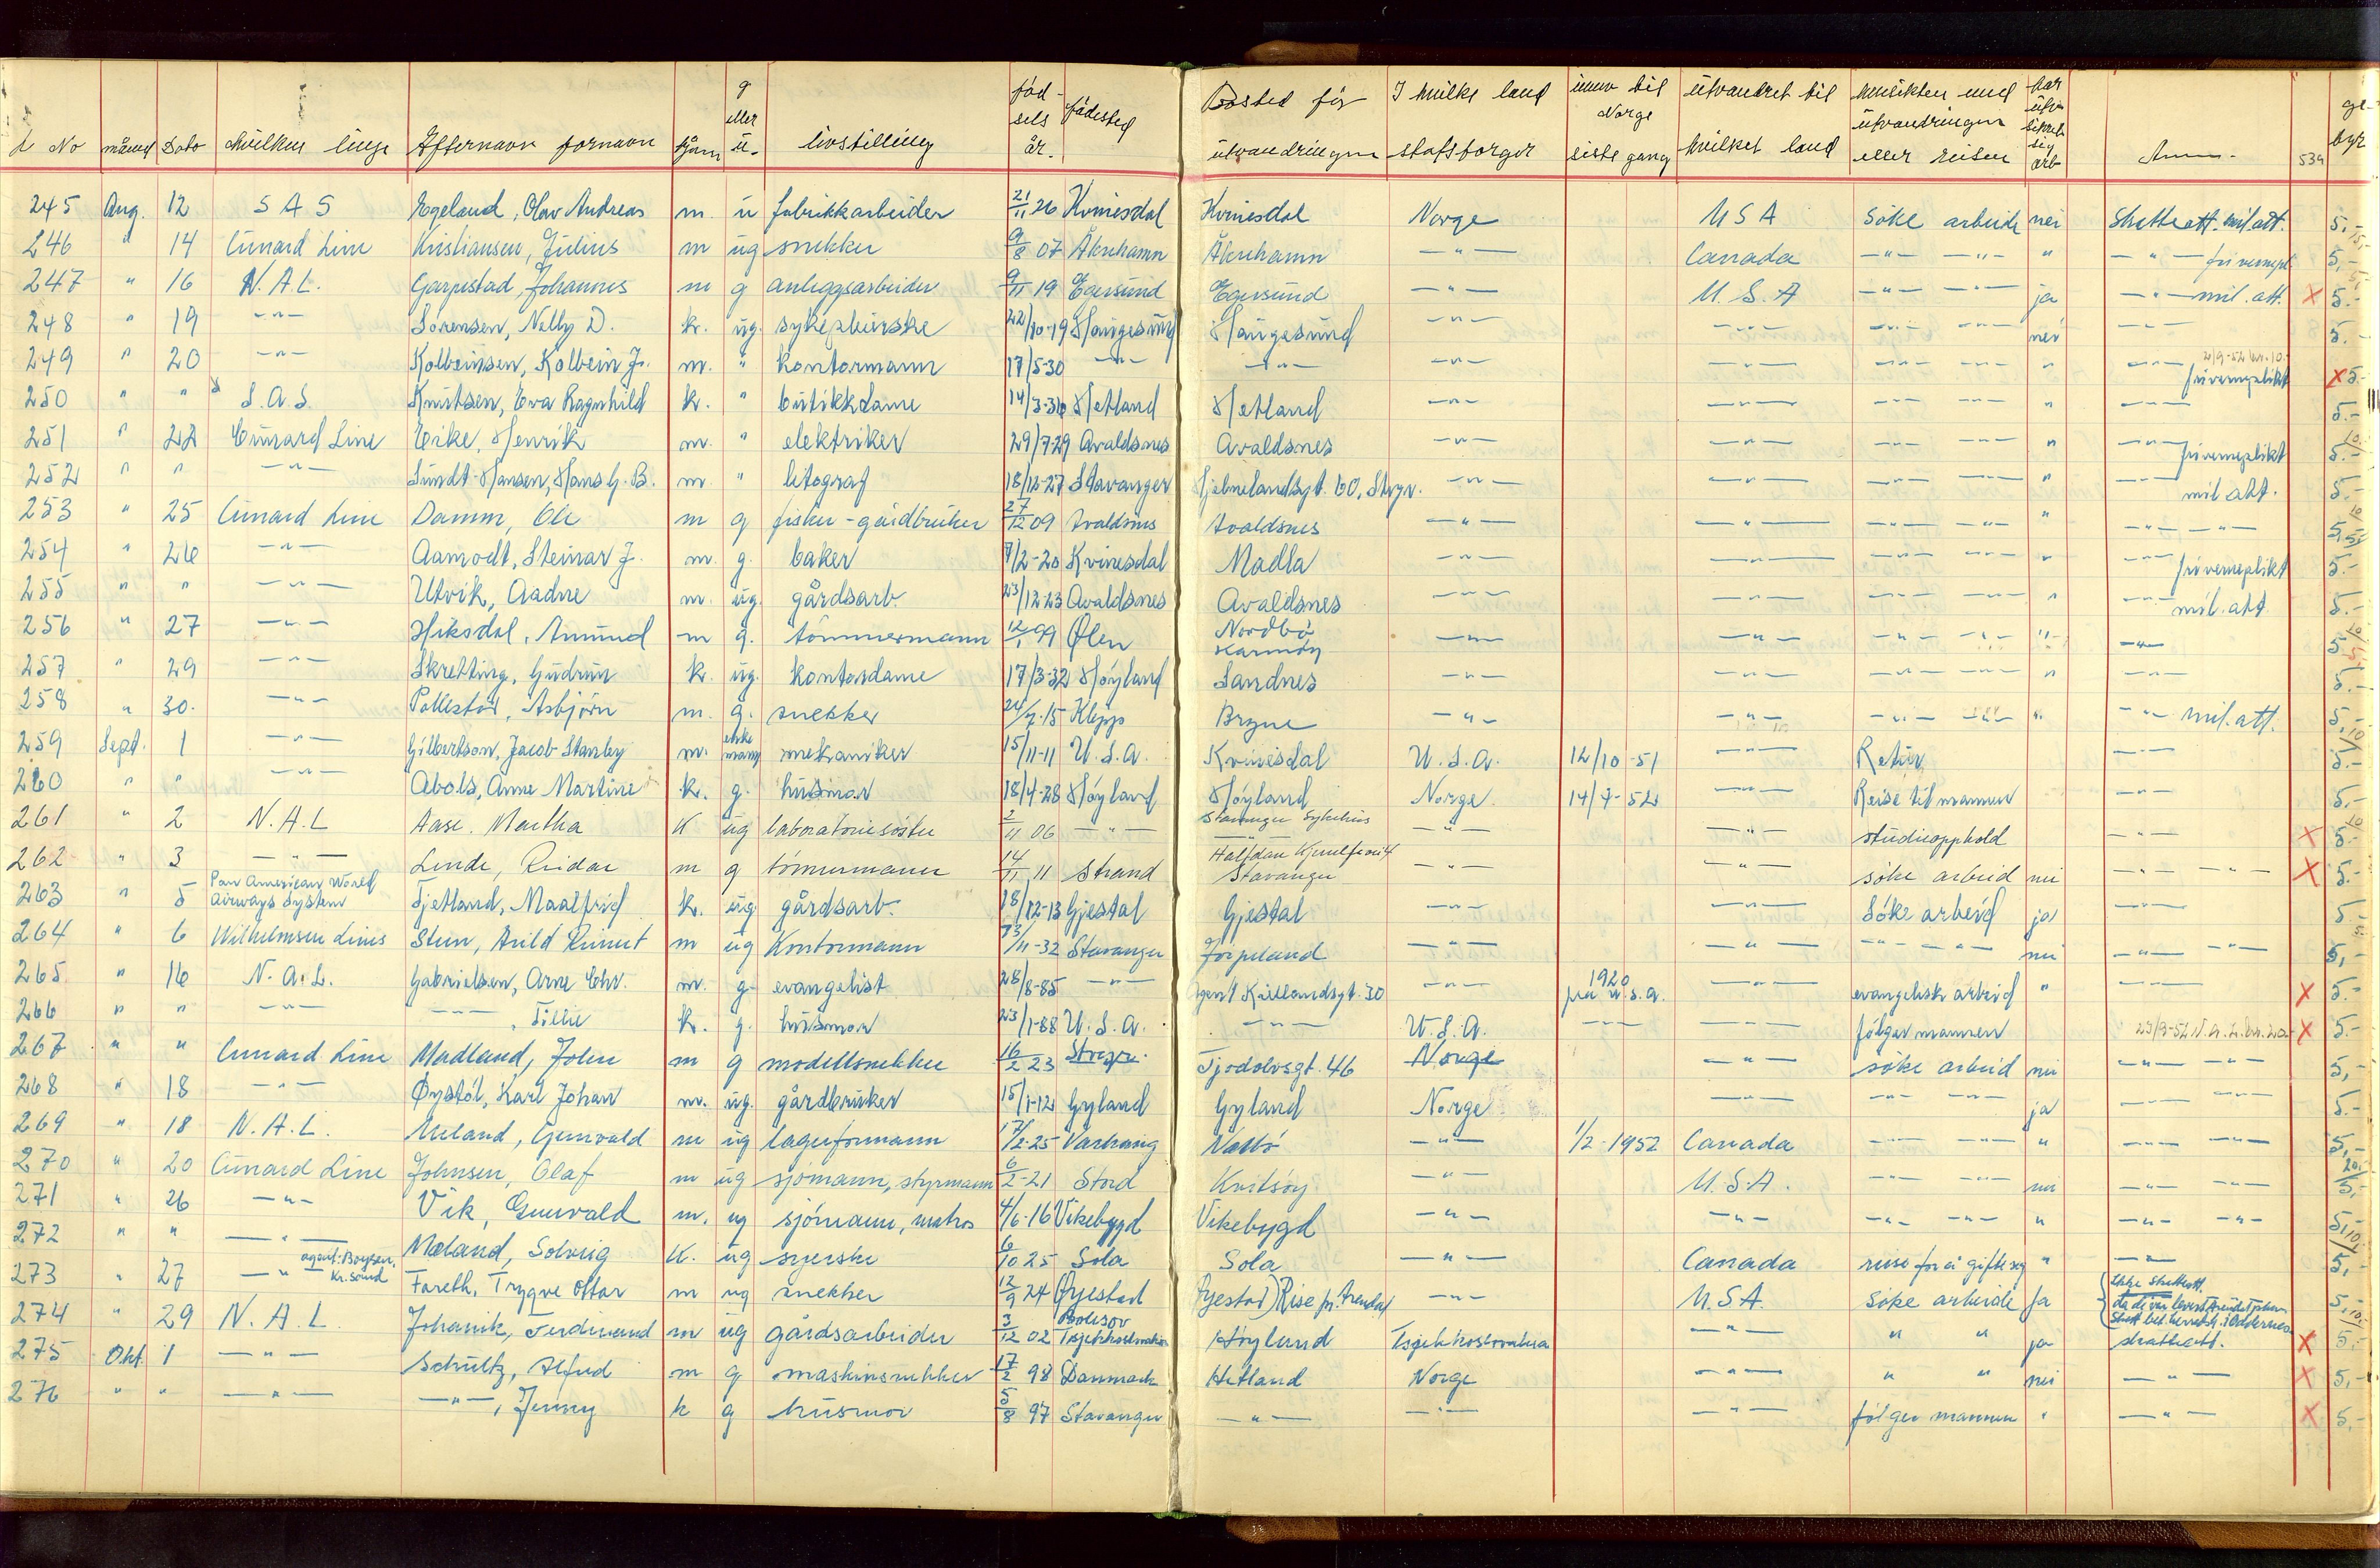 L No måned Dato hvilken linje Efternavn fornavn kjønn g eller u- livstilling fødsels år. fødested Bosted før utvandringen I hvilke land statsborger innv til Norge siste gang utvandret til hvilket land hensikten med utvandringen eller reisen har utv. sikret seg arb Anm. 534 gebyr
245 Aug. 12 S A S Egeland, Olav Andreas m. u fabrikkarbeider 21/11 26 Kvinesdal Kvinesdal Norge U S A söke arbeide nei Skatteatt. mil. att. 5,-
246 " 14 Cunard Line Kristiansen, Julius m ug snekker 9/8 07 Åkrehamn Åkrehamn -"- Canada -"- -"- " -"- fri vernepl 5,-
247 " 16 N.A.L. Garpestad, Johannes m g anleggsarbeider 9/11 19 Egersund Egersund -"- U.S.A -"- -"- ja -"- mil. att. X 5.-
248 " 19 -"- Sörensen, Nelly D. k. ug. sykepleierske 22/10-19 Haugesund Haugesund -"- -"- -"- -"- nei -"- 5.-
249 " 20 -"- Kolbeinsen, Kolbein J. m. " kontormann 17/5-30 -"- -"- -"- -"- -"- -"- " -"- 2/9-52 kr. 10.- fri verneplikt X 5.-
250 " " S.A.S. Knutsen, Eva Ragnhild k. " butikkdame 14/3-36 Hetland Hetland -"- -"- -"- -"- " -"- 5.-
251 " 22 Cunard Line Eike, Henrik m. " elektriker 29/7-29 Avaldsnes Avaldsnes -"- -"- -"- -"- " -"- fri verneplikt 5.-
252 " " -"- Sundt-Hansen, Hans G. B. m. " litograf 18/12-27 Stavanger Hjelmelandsgt. 60, Stvgr. -"- -"- -"- -"- " -"- mil att. 5.-
253 " 25 Cunard Line Damm, Ole m g fisker-gårdbruker 27/12 09 Avaldsnes Avaldsnes -"- -"- -"- -"- " -"- -"- 5,-
254 " 26 -"- Aamodt, Steinar J. m. g. baker 7/2-20 Kvinesdal Madla -"- -"- -"- -"- " -"- fri verneplikt 5.-
255 " " -"- Utvik, Aadne m. ug. gårdsarb. 23/12-23 Avaldsnes Avaldsnes -"- -"- -"- -"- " -"- mil. att. 5.-
256 " 27 -"- Hiksdal, Amund m g. tömmermann 12/1 99 Ølen Nordbö Karmöy -"- -"- -"- -"- " -"- 5,-
257 " 29 -"- Skretting, Gudrun k. ug. kontordame 17/3-32 Høyland Sandnes -"- -"- -"- -"- " -"- 5.-
258 " 30. -"- Pollestad, Asbjörn m. g. snekker 24/7-15 Klepp Bryne -"- -"- -"- -"- " -"- mil. att. 5,-
259 Sept. 1 -"- Gilbertson, Jacob Stanley m. enke mann mekaniker 15/11-11 U.S.A. Kvinesdal U.S.A. 12/10-51 -"- Retur -"- 5.-
260 " " -"- Abols, Anne Martine k. g. husmor 18/4-28 Høyland Høyland Norge 14/7-52 -"- Reise til mannen -"- 5.-
261 " 2 N.A.L Aase. Martha K ug laboratoriesöster 2/11 06 -"- Stavanger Sykehus -"- -"- studieopphold -"- X 5.-
262 " 3 -"- Linde, Reidar m g tömmermann 14/11 11 Strand Halfdan Stavanger -"- -"- söke arbeid nei -"- -"- X 5.-
263 " 5 Pan American World Airways System Tjetland, Maalfrid k. ug gårdsarb. 18/12-13 Gjestal Gjestal -"- -"- Söke arbeid ja -"- 5.-
264 " 6 Wilhelmsen Lines Steen, Arild m ug Kontormann /11-32 Stavanger Jörpeland -"- -"- -"- -"- nei -"- -"- 5,-
265 " 16 N.A.L. Gabrielsen, Arne Chr. m. g. evangelist 28/8-85 -"- Kiellandsgt. 30 -"- 1920 fra U.S.A. -"- evangelisk arbeid " -"- X 5.-
266 " " -"- -"-, Tillie k. g. husmor 23/1-88 U.S.A. -"- U.S.A. -"- -"- følger mannen X 5.-
267 " " Cunard Line Madland, John m g modellsnekker 16/2 23 Stvgr. Tjodolvsgt. 46 Norge -"- söke arbeid nei -"- -"- 5,-
268 " 18 -"- Øystöl, Karl Johan m. ug. gårdbruker 15/1-12 Gyland Gyland Norge -"- -"- -"- ja -"- -"- 5.-
269 " 18 N.A.L. Meland, Gunvald m ug lagerformann 17/2-25 Varhaug Nærbö -"- 1/2-1952 Canada -"- -"- " -"- -"- 5,-
270 " 20 Cunard Line Johnsen, Olaf m ug sjömann, styrmann 6/2-21 Stord Kvitsöy -"- U.S.A. -"- -"- nei -"- -"- 5,-
271 " 26 -"- Vik, Gunvald m. ug sjömann, matros 4/6-16 Vikebygd Vikebygd -"- -"- -"- -"- " -"- -"- 5,-
272 " " -"- Mæland, Solveig K. ug syerske 6/10 25 Sola Sola -"- Canada reise for å gifte seg " -"- 5,-
273 " 27 -"- agent: Boysen, Kr.sand Fareth, Trygve Ottar m ug snekker 12/9 24 Øyestad Øyestad) Rise pr. Arendal -"- U.S.A. Söke arbeide ja Ikke skatteatt. da de var levert Arendal 5,-
274 " 29 N.A.L. Johanik, Ferdinand m ug gårdsarbeider 3/12 02 Bolesov Tsjekkoslovakia Høyland Tsjekkoslovakia -"- " " ja skatteatt. X 5,-
275 Okt. 1 -"- Schultz, Alfred m g maskinsnekker 17/2 98 Danmark Hetland Norge -"- " " nei -"- X 5,-
276 " " -"- -"-, Jenny k g husmor 5/8 97 Stavanger -"- -"- -"- følger mannen " -"- X 5.-